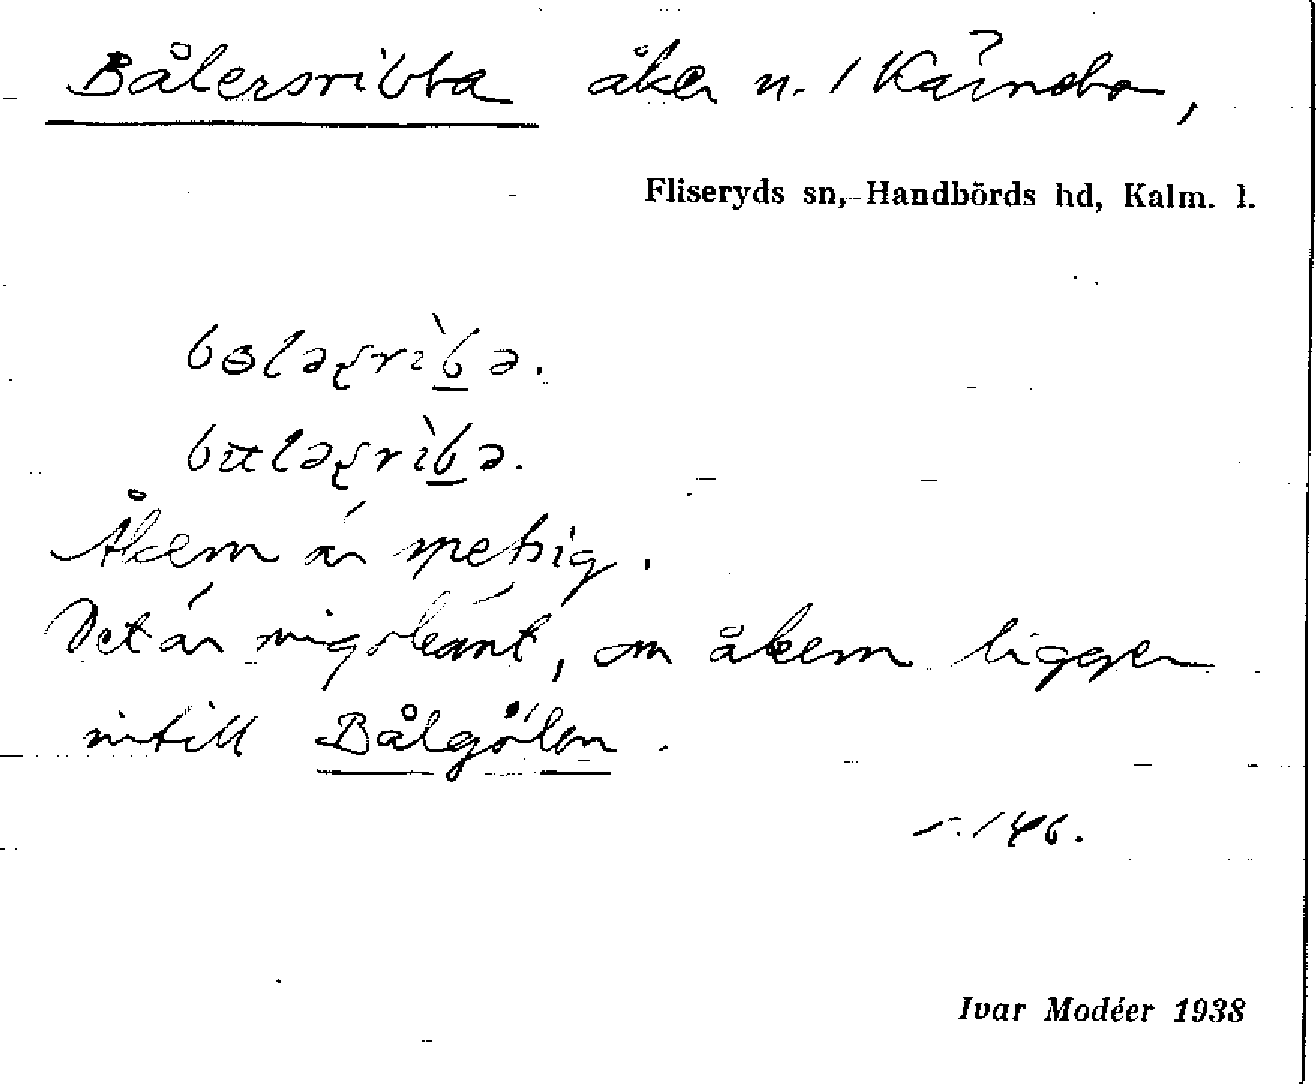 Bålersribba åker n. 1 Kärnebo,
Fliseryds sn, Handbörds hd, Kalm. l.
Åkern är spetsig.
Det är migobekant, om åkern ligger
intill Bålgölen.
s. 146.
Ivar Modéer 1938